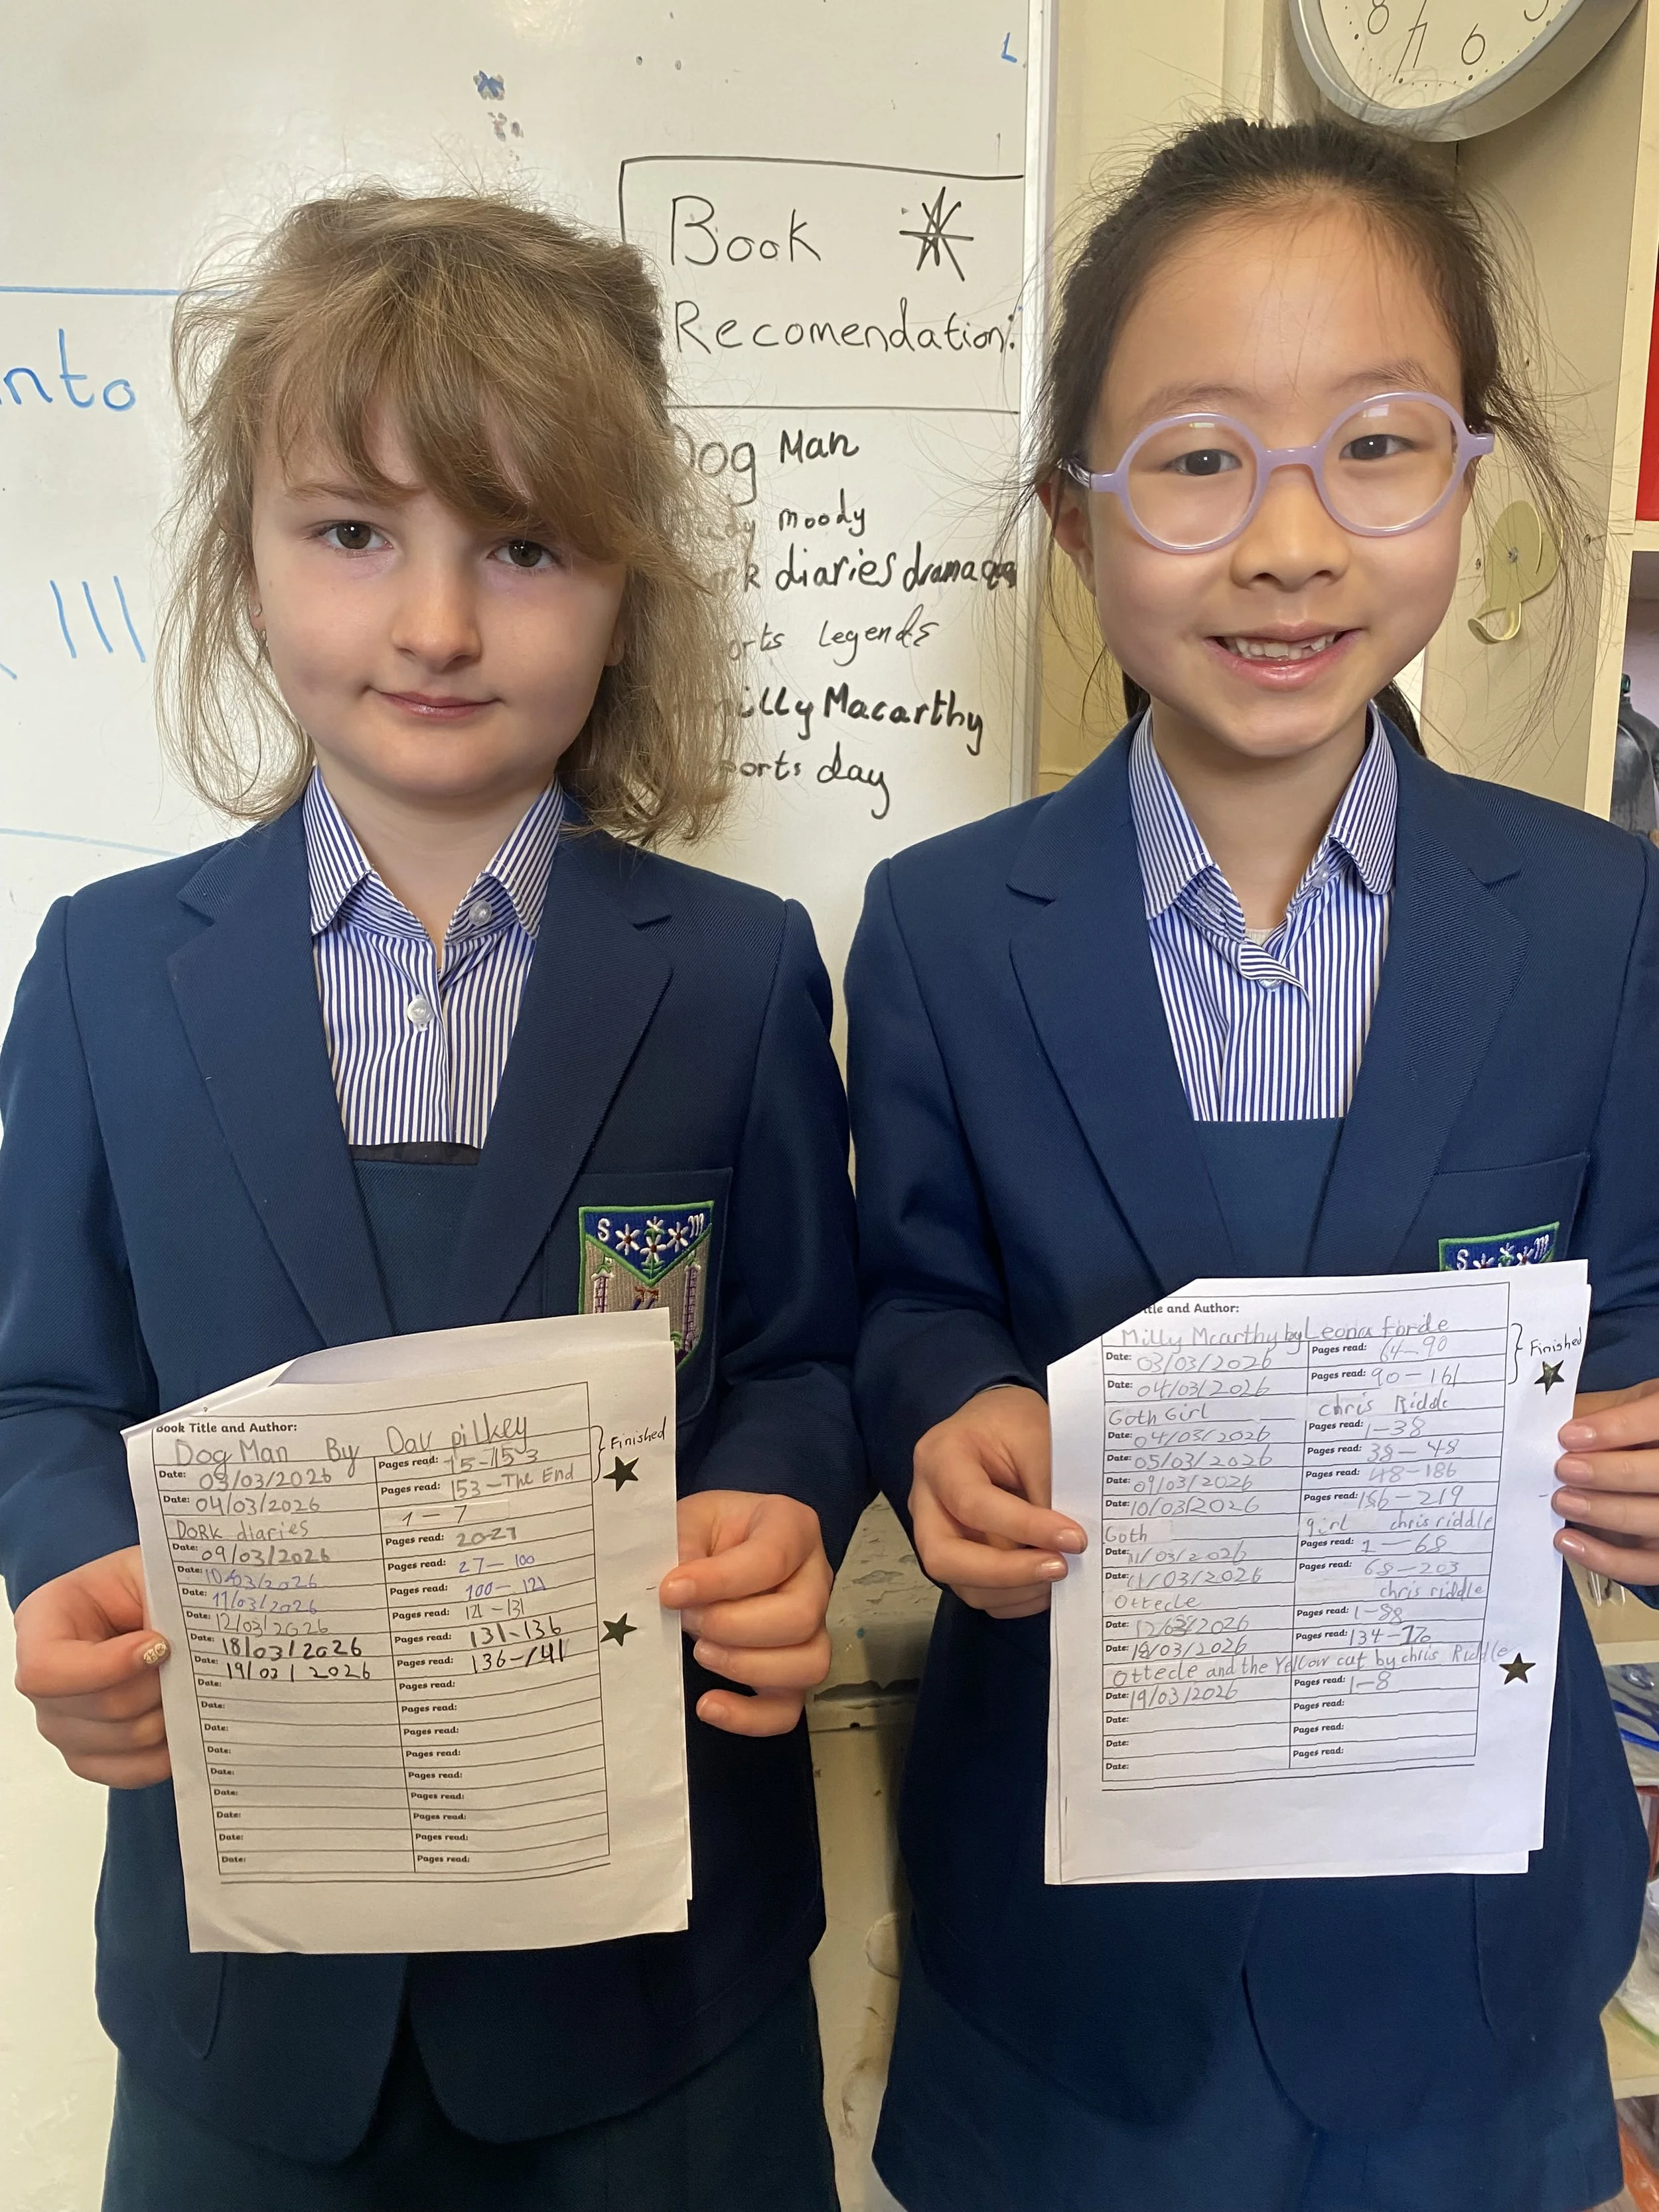 nto
Book
Recomendation:
Dog Man
moody
diaries drama
orts legends
illy Macarthy
orts day
8 7 6 5
S M
S M
Book Title and Author:
Dog Man By Dav pilkey
Date: 03/03/2026 Pages read: 15-153
Date: 04/03/2026 Pages read: 153-The End
Finished
DORK diaries 1-7
Date: 09/03/2026 Pages read: 20-27
Date: 10/03/2026 Pages read: 27-100
Date: 11/03/2026 Pages read: 100-121
Date: 12/03/2026 Pages read: 121-131
Date: 18/03/2026 Pages read: 131-136
Date: 19/03/2026 Pages read: 136-141
Date: Pages read:
Date: Pages read:
Date: Pages read:
Date: Pages read:
Date: Pages read:
Date: Pages read:
Date: Pages read:
Date: Pages read:
Date: Pages read:
tle and Author:
Milly Mcarthy by Leona Forde
Date: 03/03/2026 Pages read: 64-90
Date: 04/03/2026 Pages read: 90-161
Finished
Goth Girl chris Riddle
Date: 04/03/2026 Pages read: 1-38
Date: 05/03/2026 Pages read: 38-48
Date: 09/03/2026 Pages read: 48-186
Date: 10/03/2026 Pages read: 186-219
Goth girl chris riddle
Date: 11/03/2026 Pages read: 1-68
Date: 11/03/2026 Pages read: 68-203
Ottecle chris riddle
Date: 12/03/2026 Pages read: 1-88
Date: 18/03/2026 Pages read: 134-
Ottecle and the Yellow cat by chris Riddle
Date: 19/03/2026 Pages read: 1-8
Date: Pages read:
Date: Pages read:
Date: Pages read: